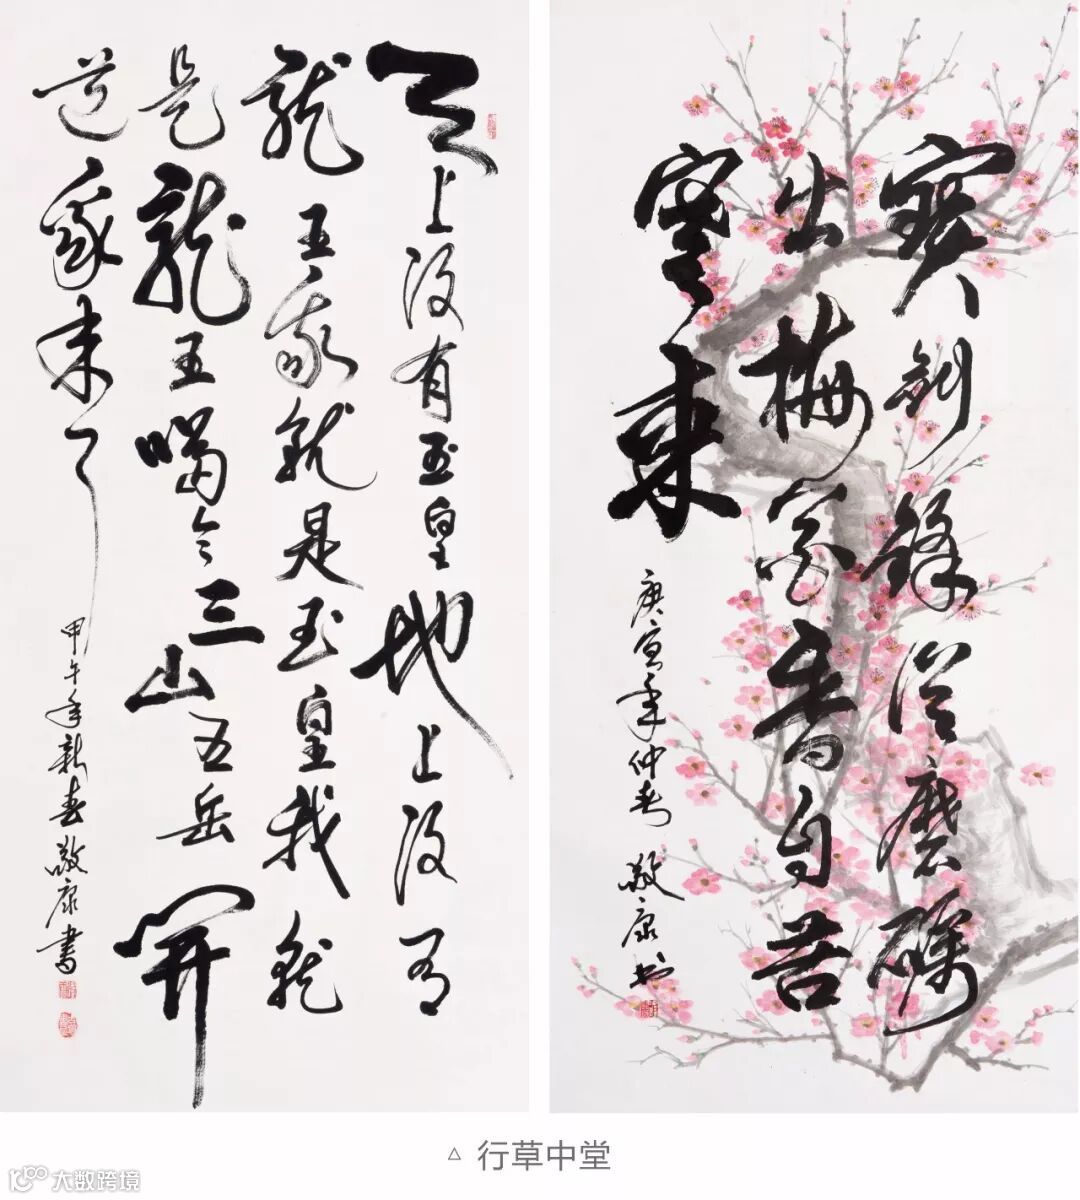 天上没有玉皇地上没有
龍王我就是玉皇我就
是龍王喝令三山五岳開
道我来了
甲午年新春敬康書
寶劍鋒從磨礪
出梅花香自苦
寒來
庚寅年仲春敬康书
△ 行草中堂
大数跨境